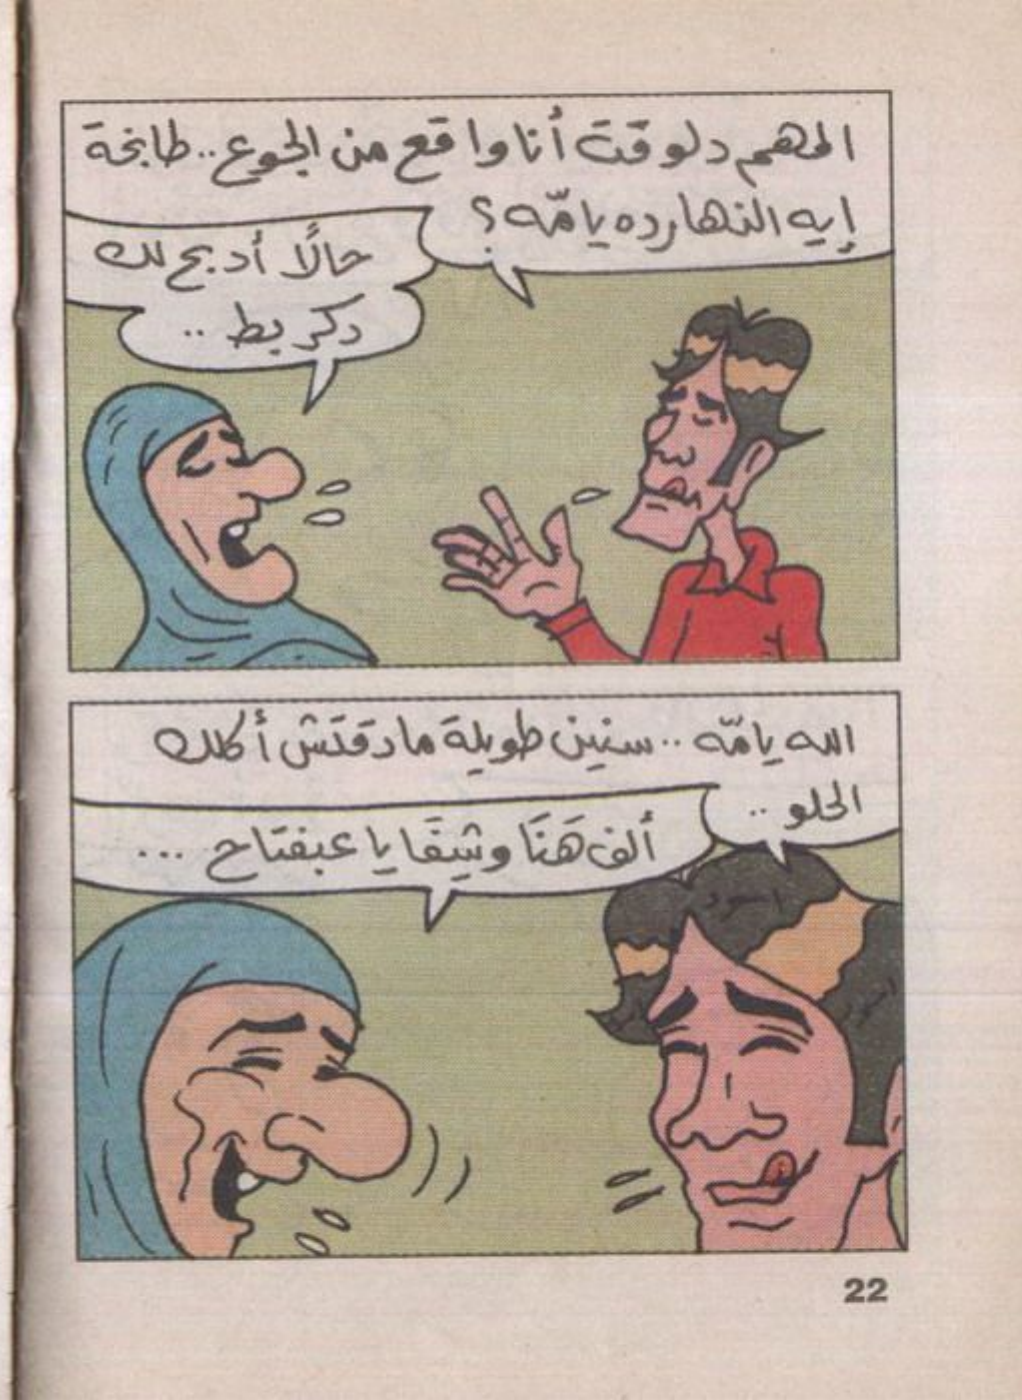 المهم دلوقت أنا واقع من الجوع.. طابخة
إيه النهارده يا مّه؟
حالًا أدبح لك
دكر بط ..
الله يا مّه .. سنين طويلة ما دقتش أكلك
الحلو ..
ألف هَنَا وشِفَا يا عبفتاح ...
اسود
اسود
22